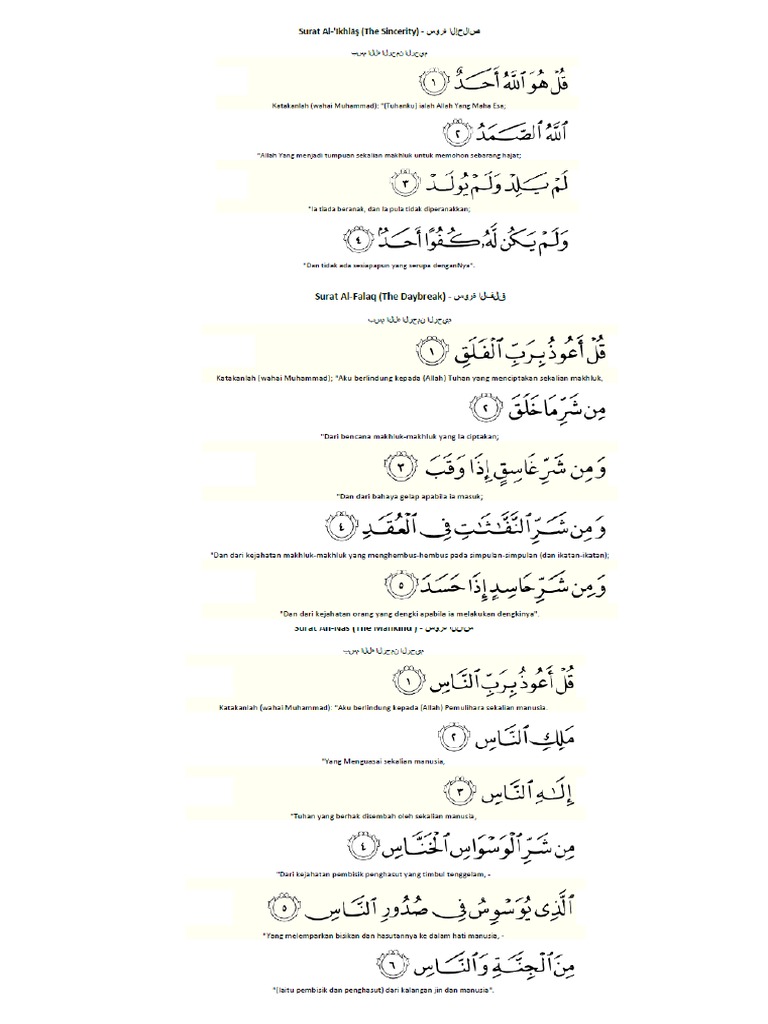 Surat Al-'Ikhlaş (The Sincerity) - سورة الإخلاص
بسم الله الرحمن الرحيم
قُلْ هُوَ ٱللَّهُ أَحَدٌ ١
Katakanlah (wahai Muhammad): "(Tuhanku) ialah Allah Yang Maha Esa;
ٱللَّهُ ٱلصَّمَدُ ٢
"Allah Yang menjadi tumpuan sekalian makhluk untuk memohon sebarang hajat;
لَمْ يَلِدْ وَلَمْ يُولَدْ ٣
"Ia tiada beranak, dan Ia pula tidak diperanakkan;
وَلَمْ يَكُن لَّهُۥ كُفُوًا أَحَدٌۢ ٤
"Dan tidak ada sesiapapun yang serupa denganNya".
Surat Al-Falaq (The Daybreak) - سورة الفلق
بسم الله الرحمن الرحيم
قُلْ أَعُوذُ بِرَبِّ ٱلْفَلَقِ ١
Katakanlah (wahai Muhammad); "Aku berlindung kepada (Allah) Tuhan yang menciptakan sekalian makhluk,
مِن شَرِّ مَا خَلَقَ ٢
"Dari bencana makhluk-makhluk yang Ia ciptakan;
وَمِن شَرِّ غَاسِقٍ إِذَا وَقَبَ ٣
"Dan dari bahaya gelap apabila ia masuk;
وَمِن شَرِّ ٱلنَّفَّٰثَٰتِ فِى ٱلْعُقَدِ ٤
"Dan dari kejahatan makhluk-makhluk yang menghembus-hembus pada simpulan-simpulan (dan ikatan-ikatan);
وَمِن شَرِّ حَاسِدٍ إِذَا حَسَدَ ٥
"Dan dari kejahatan orang yang dengki apabila ia melakukan dengkinya".
Surat An-Nās (The Mankind) - سورة الناس
بسم الله الرحمن الرحيم
قُلْ أَعُوذُ بِرَبِّ ٱلنَّاسِ ١
Katakanlah (wahai Muhammad): "Aku berlindung kepada (Allah) Pemulihara sekalian manusia.
مَلِكِ ٱلنَّاسِ ٢
"Yang Menguasai sekalian manusia,
إِلَٰهِ ٱلنَّاسِ ٣
"Tuhan yang berhak disembah oleh sekalian manusia,
مِن شَرِّ ٱلْوَسْوَاسِ ٱلْخَنَّاسِ ٤
"Dari kejahatan pembisik penghasut yang timbul tenggelam, -
ٱلَّذِى يُوَسْوِسُ فِى صُدُورِ ٱلنَّاسِ ٥
"Yang melemparkan bisikan dan hasutannya ke dalam hati manusia, -
مِنَ ٱلْجِنَّةِ وَٱلنَّاسِ ٦
"(Iaitu pembisik dan penghasut) dari kalangan jin dan manusia".